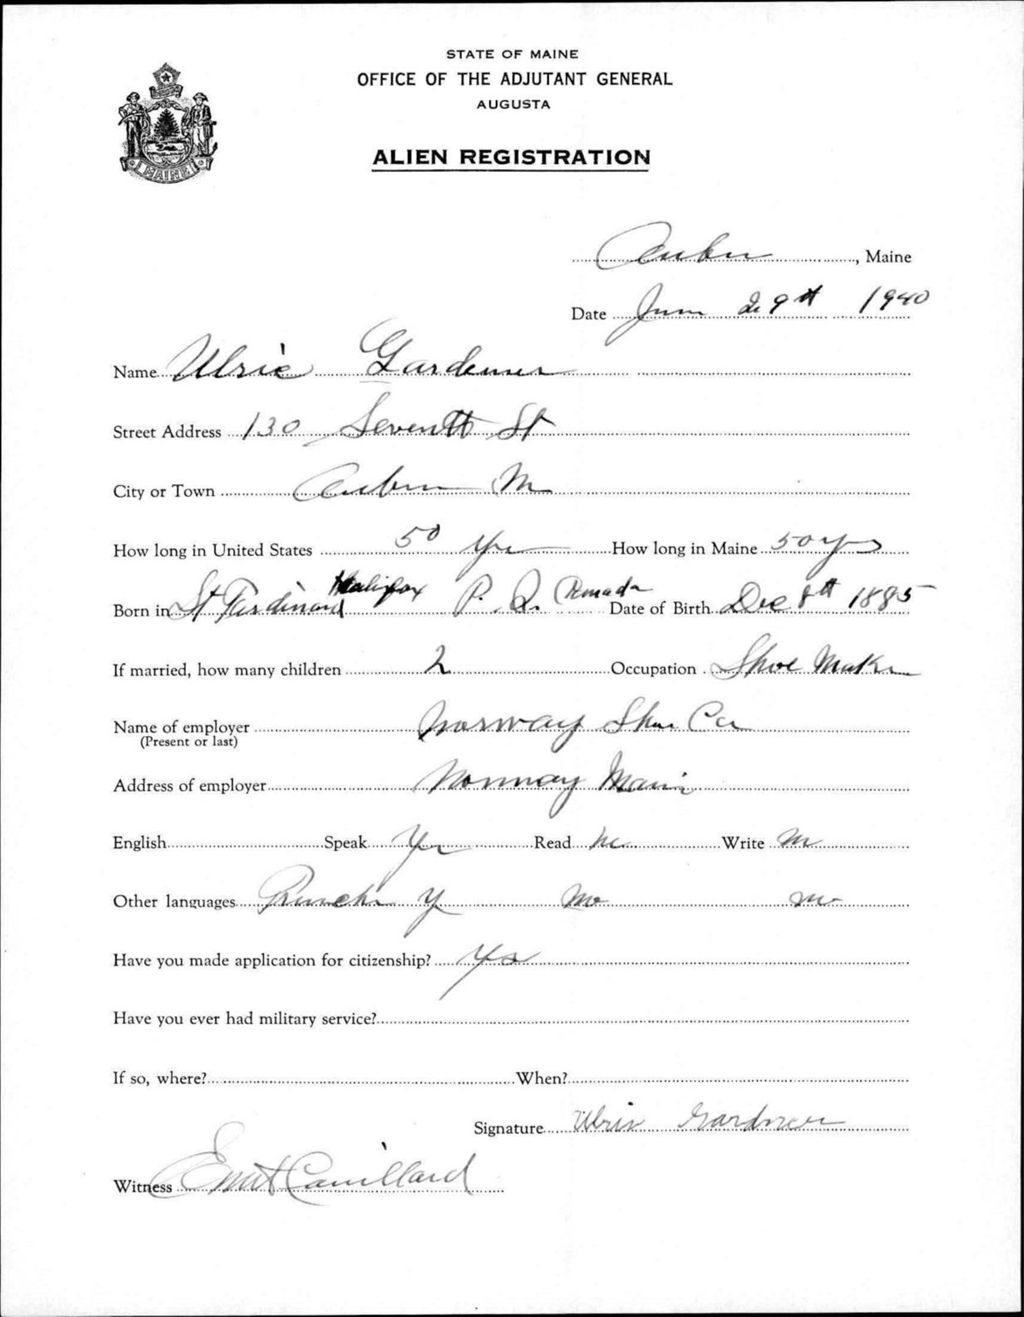 STATE OF MAINE
OFFICE OF THE ADJUTANT GENERAL
AUGUSTA
ALIEN REGISTRATION
MAINE
Auburn, Maine
Date June 29th 1940
Name Ulric Gardener
Street Address 130 Seventh St
City or Town Auburn M
How long in United States 50 Yrs How long in Maine 50 yrs
Born in St Ferdinand Halifax P. Q. Canada Date of Birth Dec 8th 1885
If married, how many children 2 Occupation Shoe Maker
Name of employer Norway Shoe Co
(Present or last)
Address of employer Norway Maine
English Speak Yes Read no Write no
Other languages French Y no no
Have you made application for citizenship? Yes
Have you ever had military service?
If so, where? When?
Signature Ulric Gardner
Witness